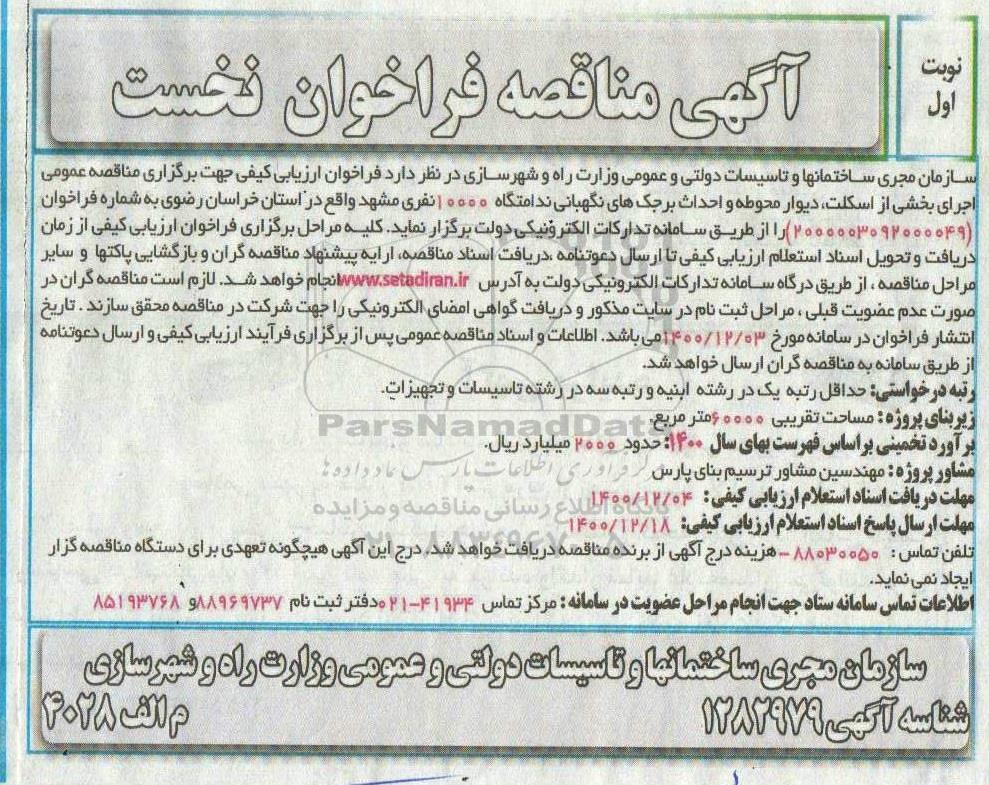 نوبت
اول
آگهی مناقصه فراخوان نخست
سازمان مجری ساختمانها و تاسیسات دولتی و عمومی وزارت راه و شهرسازی در نظر دارد فراخوان ارزیابی کیفی جهت برگزاری مناقصه عمومی
اجرای بخشی از اسکلت، دیوار محوطه و احداث برجک های نگهبانی ندامتگاه ۱۰۰۰۰نفری مشهد واقع در استان خراسان رضوی به شماره فراخوان
(۲۰۰۰۰۰۳۰۹۲۰۰۰۰۴۹) را از طریق سامانه تدارکات الکترونیکی دولت برگزار نماید. کلیه مراحل برگزاری فراخوان ارزیابی کیفی از زمان
دریافت و تحویل اسناد استعلام ارزیابی کیفی تا ارسال دعوتنامه ،دریافت اسناد مناقصه، ارایه پیشنهاد مناقصه گران و بازگشایی پاکتها و سایر
مراحل مناقصه ، از طریق درگاه سامانه تدارکات الکترونیکی دولت به آدرس www.setadiran.ir انجام خواهد شد. لازم است مناقصه گران در
صورت عدم عضویت قبلی ، مراحل ثبت نام در سایت مذکور و دریافت گواهی امضای الکترونیکی را جهت شرکت در مناقصه محقق سازند . تاریخ
انتشار فراخوان در سامانه مورخ ۱۴۰۰/۱۲/۰۳ می باشد. اطلاعات و اسناد مناقصه عمومی پس از برگزاری فرآیند ارزیابی کیفی و ارسال دعوتنامه
از طریق سامانه به مناقصه گران ارسال خواهد شد.
رتبه درخواستی: حداقل رتبه یک در رشته ابنیه و رتبه سه در رشته تاسیسات و تجهیزات.
زیربنای پروژه : مساحت تقریبی ۶۰۰۰۰متر مربع
ParsNamadData
برآورد تخمینی براساس فهرست بهای سال ۱۴۰۰: حدود ۲۰۰۰ میلیارد ریال.
گردآوری اطلاعات پارس نماد داده ها
مشاور پروژه : مهندسین مشاور ترسیم بنای پارس
مهلت دریافت اسناد استعلام ارزیابی کیفی : ۱۴۰۰/۱۲/۰۴
پایگاه اطلاع رسانی مناقصه و مزایده
مهلت ارسال پاسخ اسناد استعلام ارزیابی کیفی: ۱۴۰۰/۱۲/۱۸
تلفن تماس : ۸۸۰۳۰۰۵۰ - هزینه درج آگهی از برنده مناقصه دریافت خواهد شد. درج این آگهی هیچگونه تعهدی برای دستگاه مناقصه گزار
ایجاد نمی نماید.
اطلاعات تماس سامانه ستاد جهت انجام مراحل عضویت در سامانه : مرکز تماس ۴۱۹۳۴-۰۲۱دفتر ثبت نام ۸۸۹۶۹۷۳۷و ۸۵۱۹۳۷۶۸
سازمان مجری ساختمانها و تاسیسات دولتی و عمومی وزارت راه و شهرسازی
شناسه آگهی ۱۲۸۲۹۷۹ م الف ۴۰۲۸